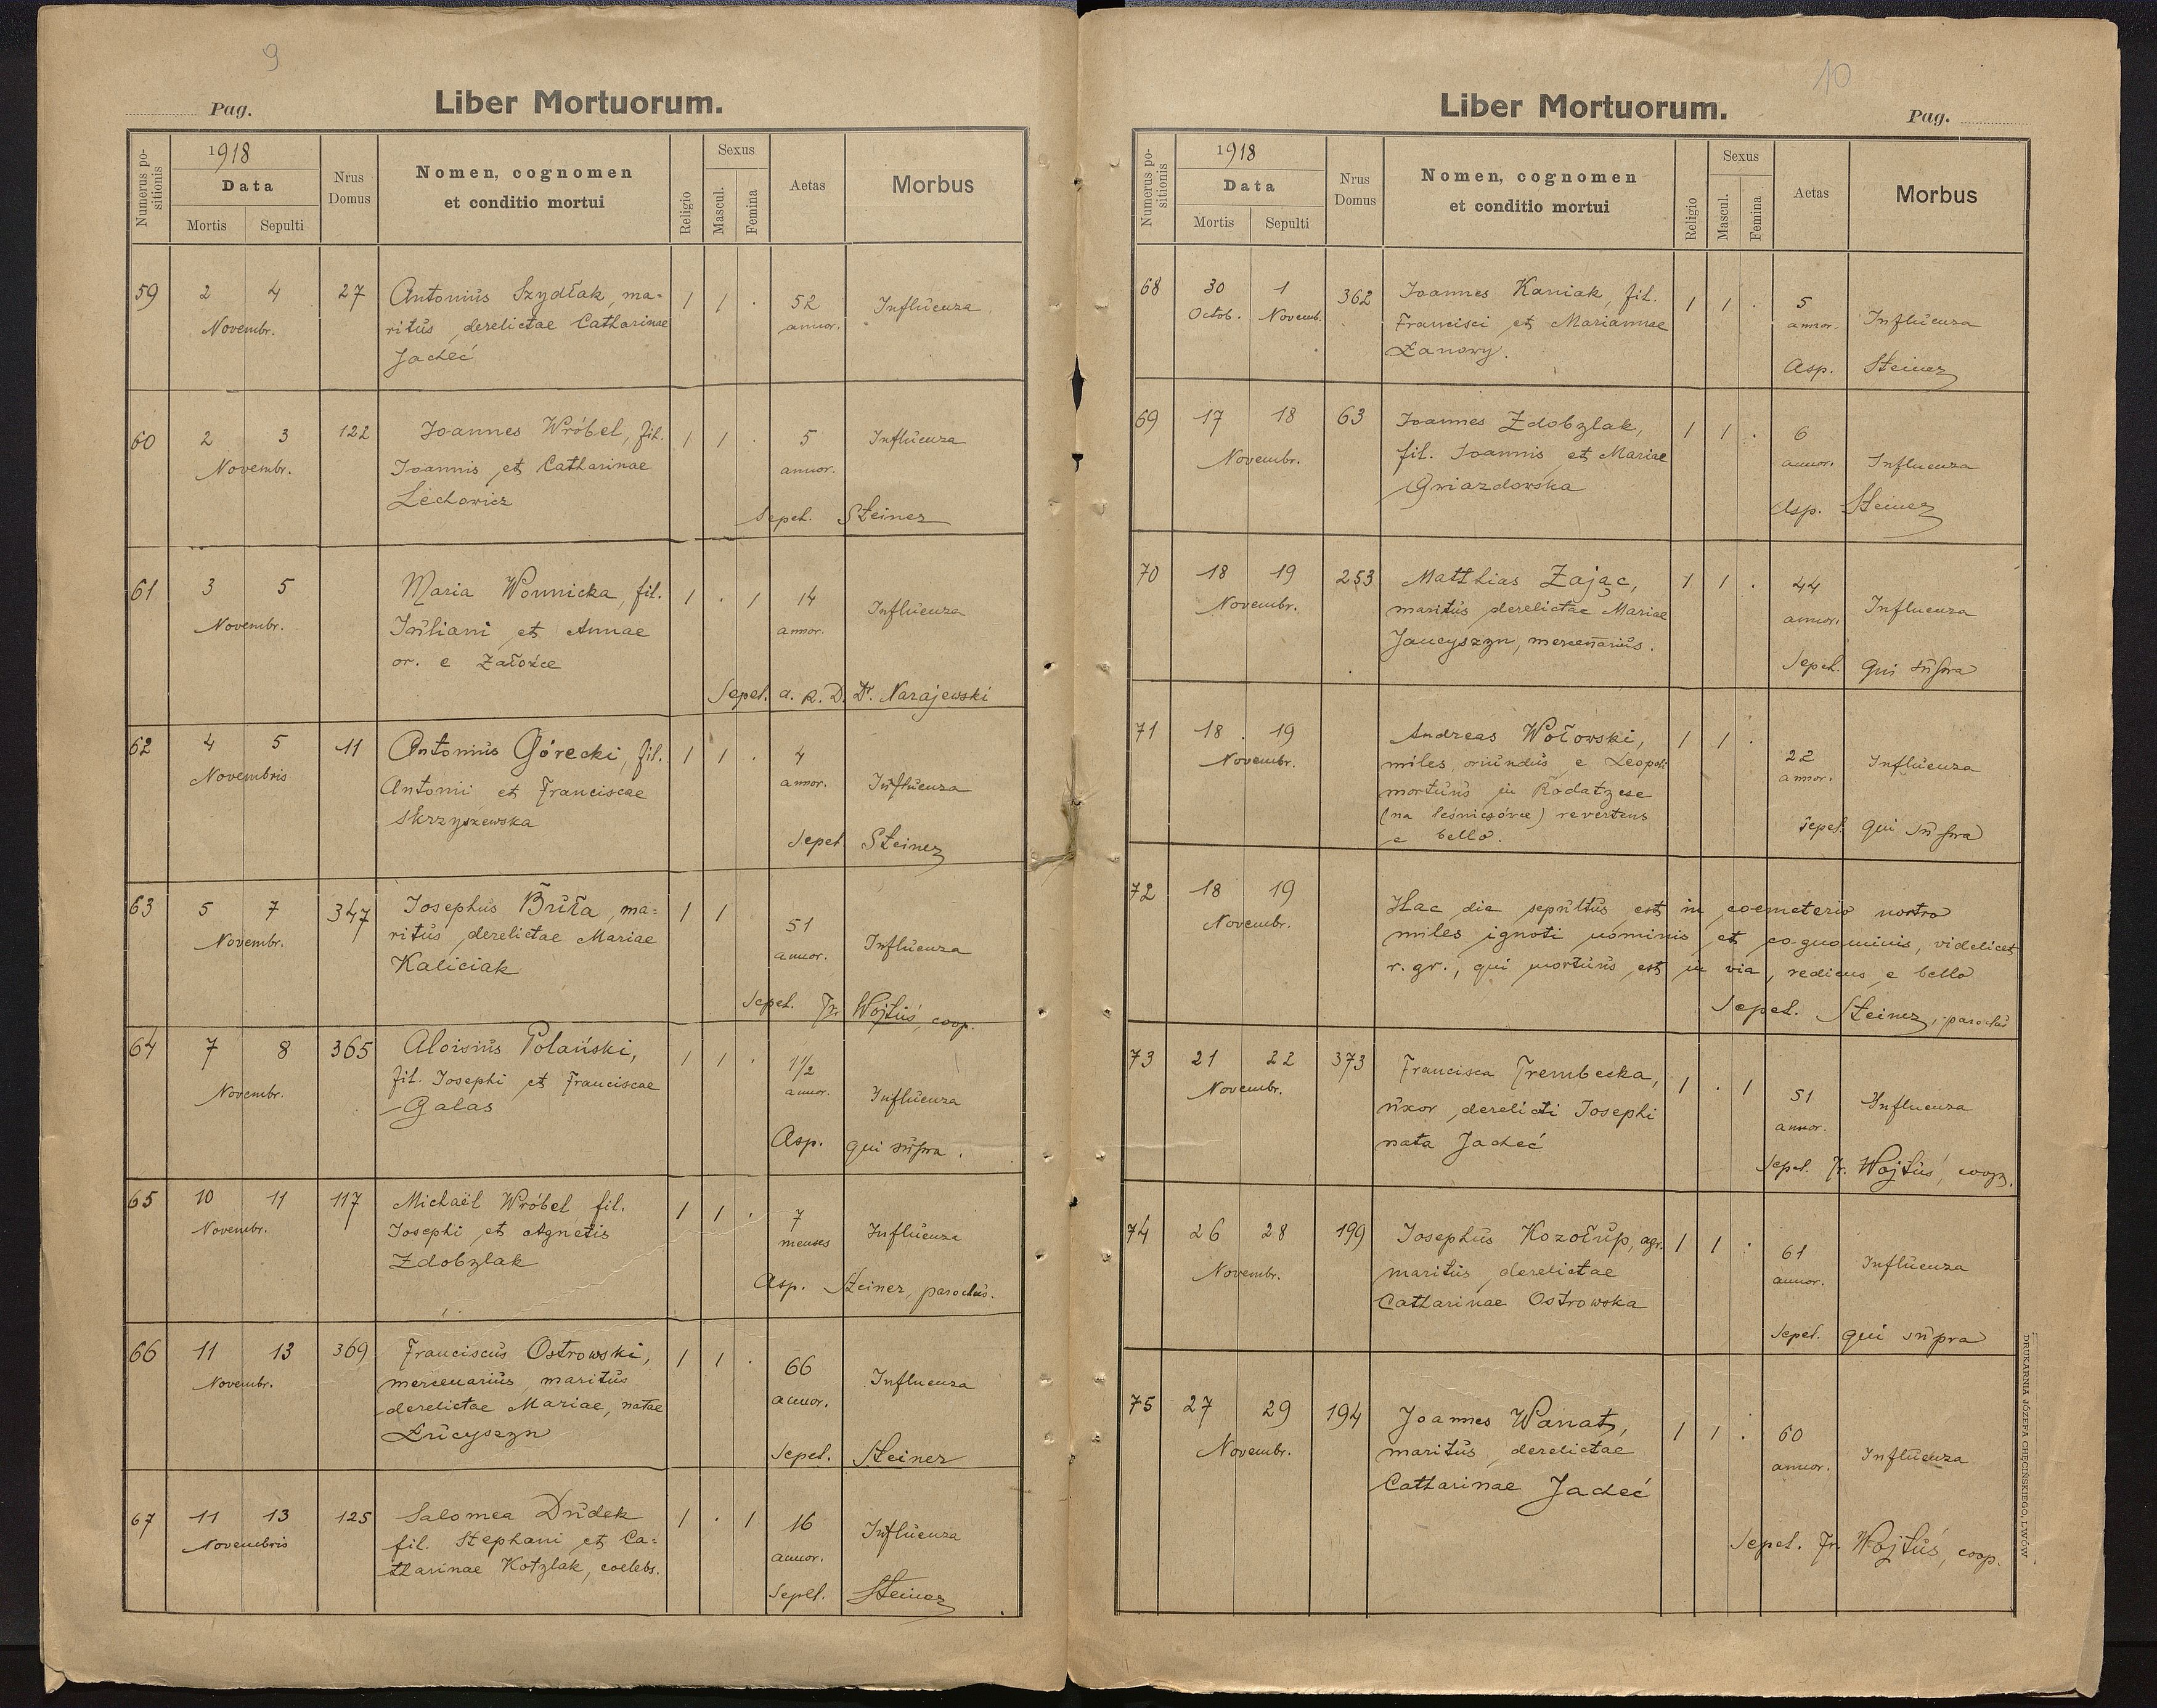 9
Pag.
Liber Mortuorum.
Numerus positionis
1918
Data
Mortis
Sepulti
Nrus Domus
Nomen, cognomen
et conditio mortui
Religio
Sexus
Mascul.
Femina
Aetas
Morbus
59 2 4 27 Antonius Szydłak, ma= 1 1 . 52 Influenza
Novembr. ritus derelictae Catharinae annor.
Jacheć
60 2 3 122 Joannes Wróbel, fil. 1 1 . 5 Influenza
Novembr. Joannis et Catharinae annor.
Lechowicz
Sepel. Steiner
61 3 5 Maria Wonnicka, fil. 1 . 1 14 Influenza
Novembr. Juliani et Annae annor.
or. e Załoźce
Sepel. a. R. D. Dr. Narajewski
62 4 5 11 Antonius Górecki, fil. 1 1 . 4
Novembris Antonii et Franciscae annor. Influenza
Skrzyszewska
Sepel. Steiner
63 5 7 347 Josephus Bruła, ma= 1 1 51
Novembr. ritus derelictae Mariae annor. Influenza
Kaliciak
Sepel. Fr. Wojtuś, coop.
64 7 8 365 Aloisius Polański, 1 1 . 1 1/2
Novembr. fil. Josephi et Franciscae annor. Influenza
Galas
Asp. qui supra.
65 10 11 117 Michaël Wróbel fil. 1 1 . 7 Influenza
Novembr. Josephi et Agnetis menses
Zdobylak
Asp. Steiner, parochus.
66 11 13 369 Franciscus Ostrowski, 1 1 . 66
Novembr. mercenarius, maritus Influenza
derelictae Mariae, natae annor.
Łucyszyn
Sepel. Steiner
67 11 13 125 Salomea Dudek 1 . 1 16 Influenza
Novembris fil. Stephani et Ca= annor.
tharinae Kotzlak, coelebs.
Sepel. Steiner
10
Liber Mortuorum.
Pag.
Numerus positionis
1918
Data
Mortis
Sepulti
Nrus Domus
Nomen, cognomen
et conditio mortui
Religio
Sexus
Mascul.
Femina
Aetas
Morbus
68 30 1 362 Joannes Kaniak, fil. 1 1 . 5
Octob. Novemb. Francisci et Mariannae annor. Influenza
Łanowy.
Asp. Steiner
69 17 18 63 Joannes Zdobylak, 1 1 . 6
Novembr. fil. Joannis et Mariae annor. Influenza
Gwiazdowska
Asp. Steiner
70 18 19 253 Matthias Zając, 1 1 . 44
Novembr. maritus derelictae Mariae annor. Influenza
Jancyszyn, mercenarius.
Sepel. qui supra
71 18 . 19 Andreas Wołowski, 1 1 . 22
Novembr. miles, oriundus e Leopoli annor. Influenza
mortuus in Rodatzese
(na leśniczówce) revertens
e bello.
Sepel. qui supra
72 18 19 Hac die sepultus est in coemeterio nostro
Novembr. miles ignoti nominis et cognominis, videlicet
r. gr., qui mortuus est in via, rediens e bello
Sepel. Steiner, parochus
73 21 22 373 Francisca Trembecka, 1 . 1 51 Influenza
Novembr. uxor derelicti Josephi annor.
nata Jacheć
Sepel. Fr. Wojtuś, coop.
74 26 28 199 Josephus Kozołup, agr. 1 1 . 61 Influenza
Novembr. maritus derelictae annor.
Catharinae Ostrowska
Sepel. qui supra
75 27 29 194 Joannes Wanat, 1 1 . 60
Novembr. maritus derelictae annor. Influenza
Catharinae Jacheć
Sepel. Fr. Wojtuś, coop.
DRUKARNIA JÓZEFA CHĘCIŃSKIEGO, LWÓW